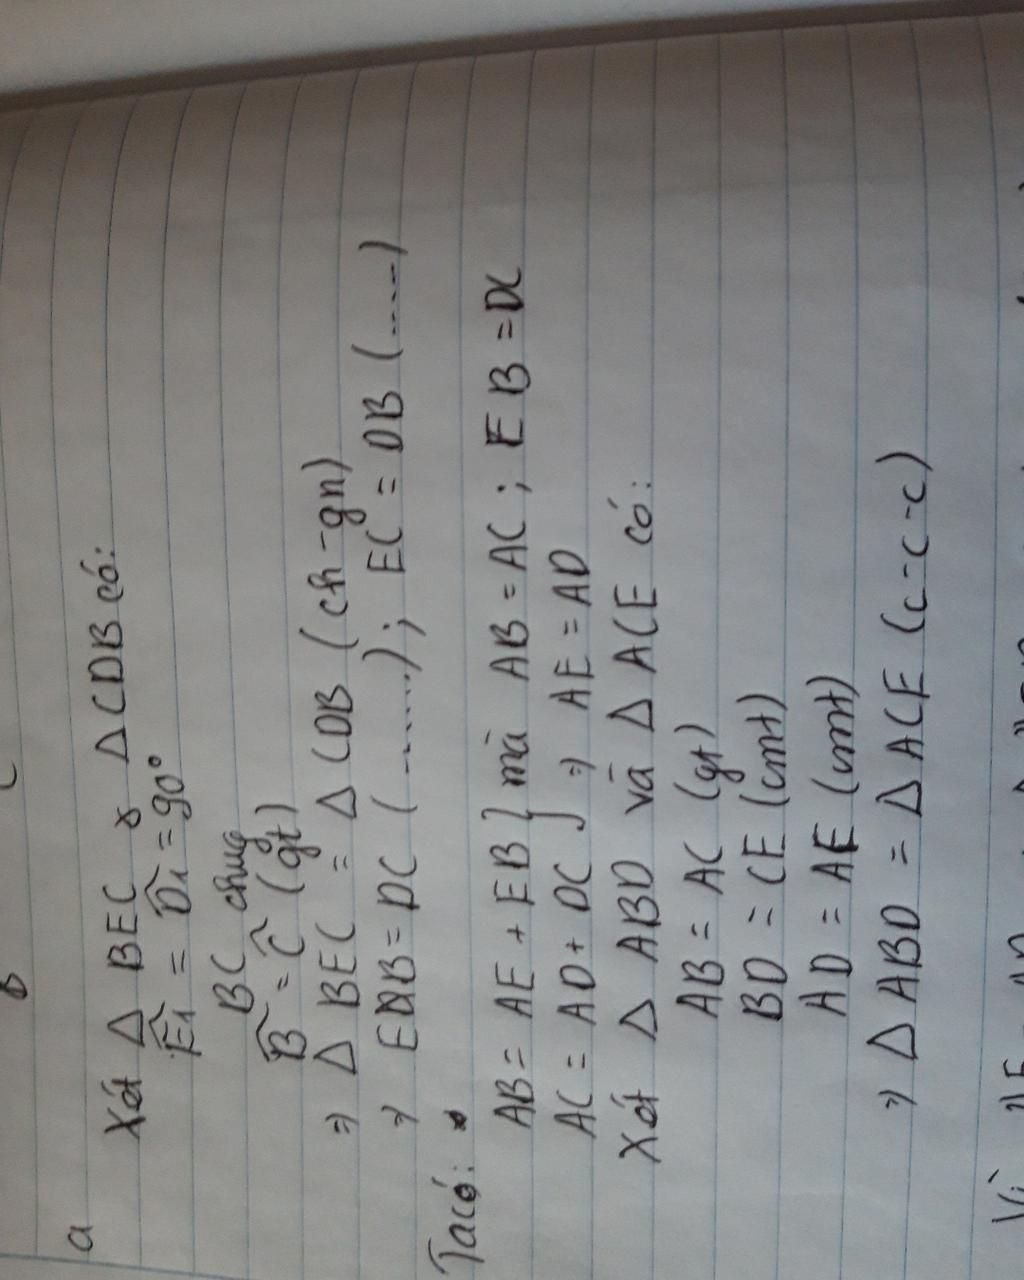 B C
a
Xét Δ BEC & Δ CDB có:
Ê1 = D̂1 = 90°
BC chug
B̂ = Ĉ (gt)
=> Δ BEC = Δ CDB (ch-gn)
=> EB = DC (.......); EC = DB (......)
Ta có:
AB = AE + EB } mà AB = AC ; EB = DC
AC = AD + DC } => AE = AD
Xét Δ ABD và Δ ACE có:
AB = AC (gt)
BD = CE (cmt)
AD = AE (cmt)
=> Δ ABD = Δ ACE (c-c-c)
Vì